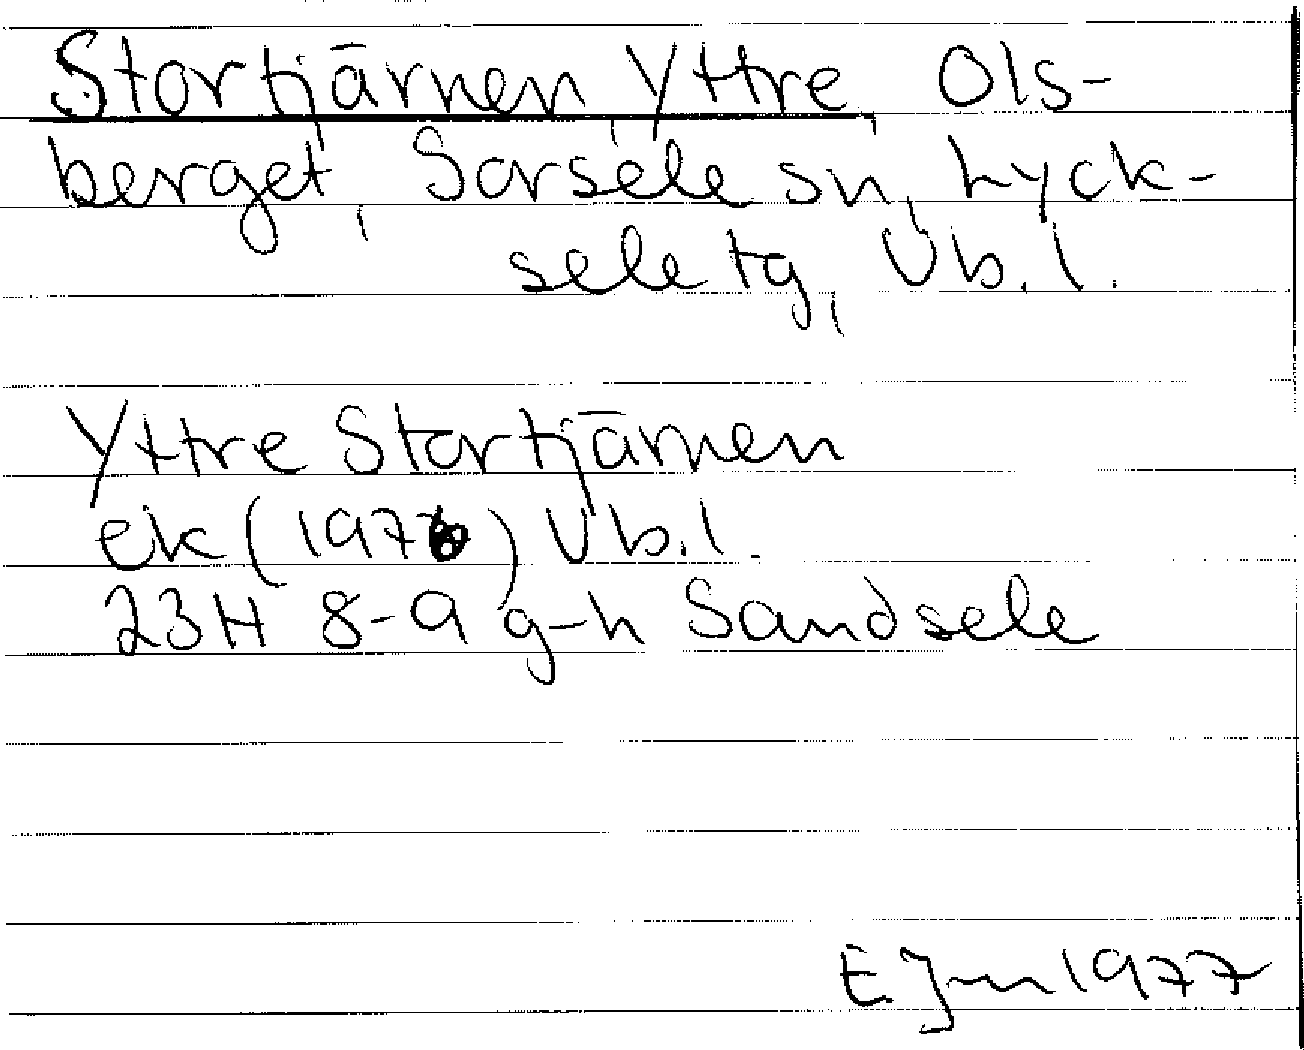 Stortjärnen, Yttre, Ols-
berget, Sorsele sn, Lyck-
sele tg, Vb. l.
Yttre Stortjärnen
ek (1976) Vb. l.
23H 8-9 g-h Sandsele
E 1977